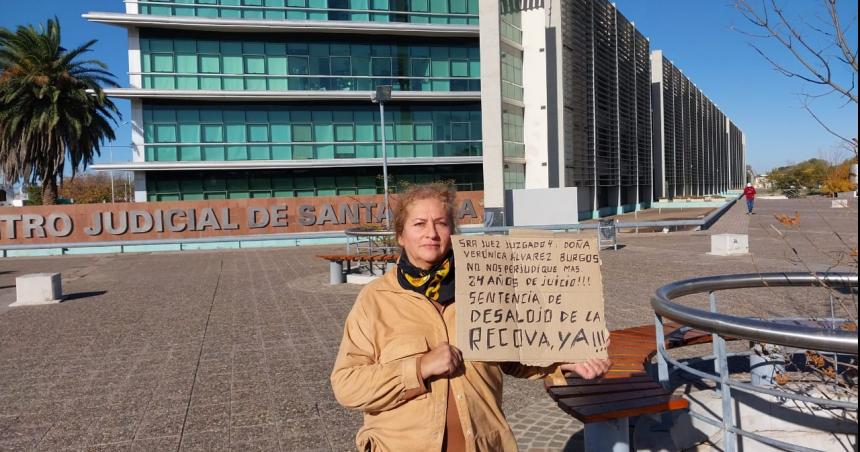 TRO JUDICIAL DE SANTA
SRA JUEZ JUZGADO 4: DOÑA
VERÓNICA ALVAREZ BURGOS
NO NOS PERJUDIQUE MAS.
24 AÑOS DE JUICIO!!!
SENTENCIA DE
DESALOJO DE LA
RECOVA, YA!!!